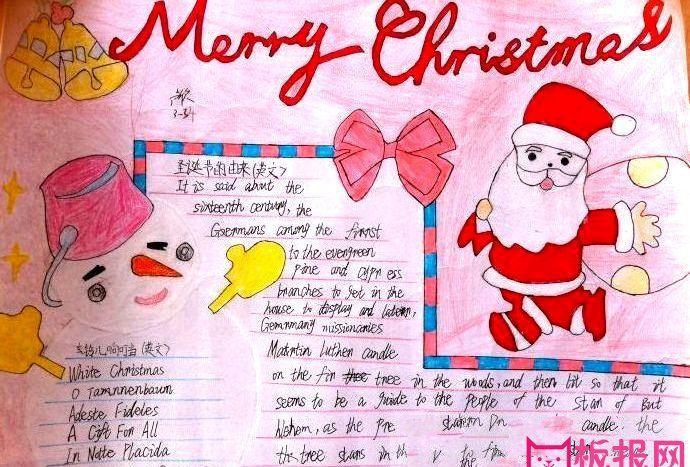 Merry Christmas
3-34
圣诞节的由来(英文)
It is said about the
sixteenth century, the
Geermans among the firnst
to the evergreen
pine and cypress
branches to get in the
house to display and latern,
Gemnmany missionenies
Matintin Luthen candle
on the fin tree tree in the woods, and then lit so that it
seems to be a guide to the people of the Stan of But
Nehem, as the pre candle. the
the tree stans in th to the
铃儿响叮当(英文)
White Christmas
O Tamnnenbaum
Adeste Fideles
A Gift For All
In Notte Placida
板报网